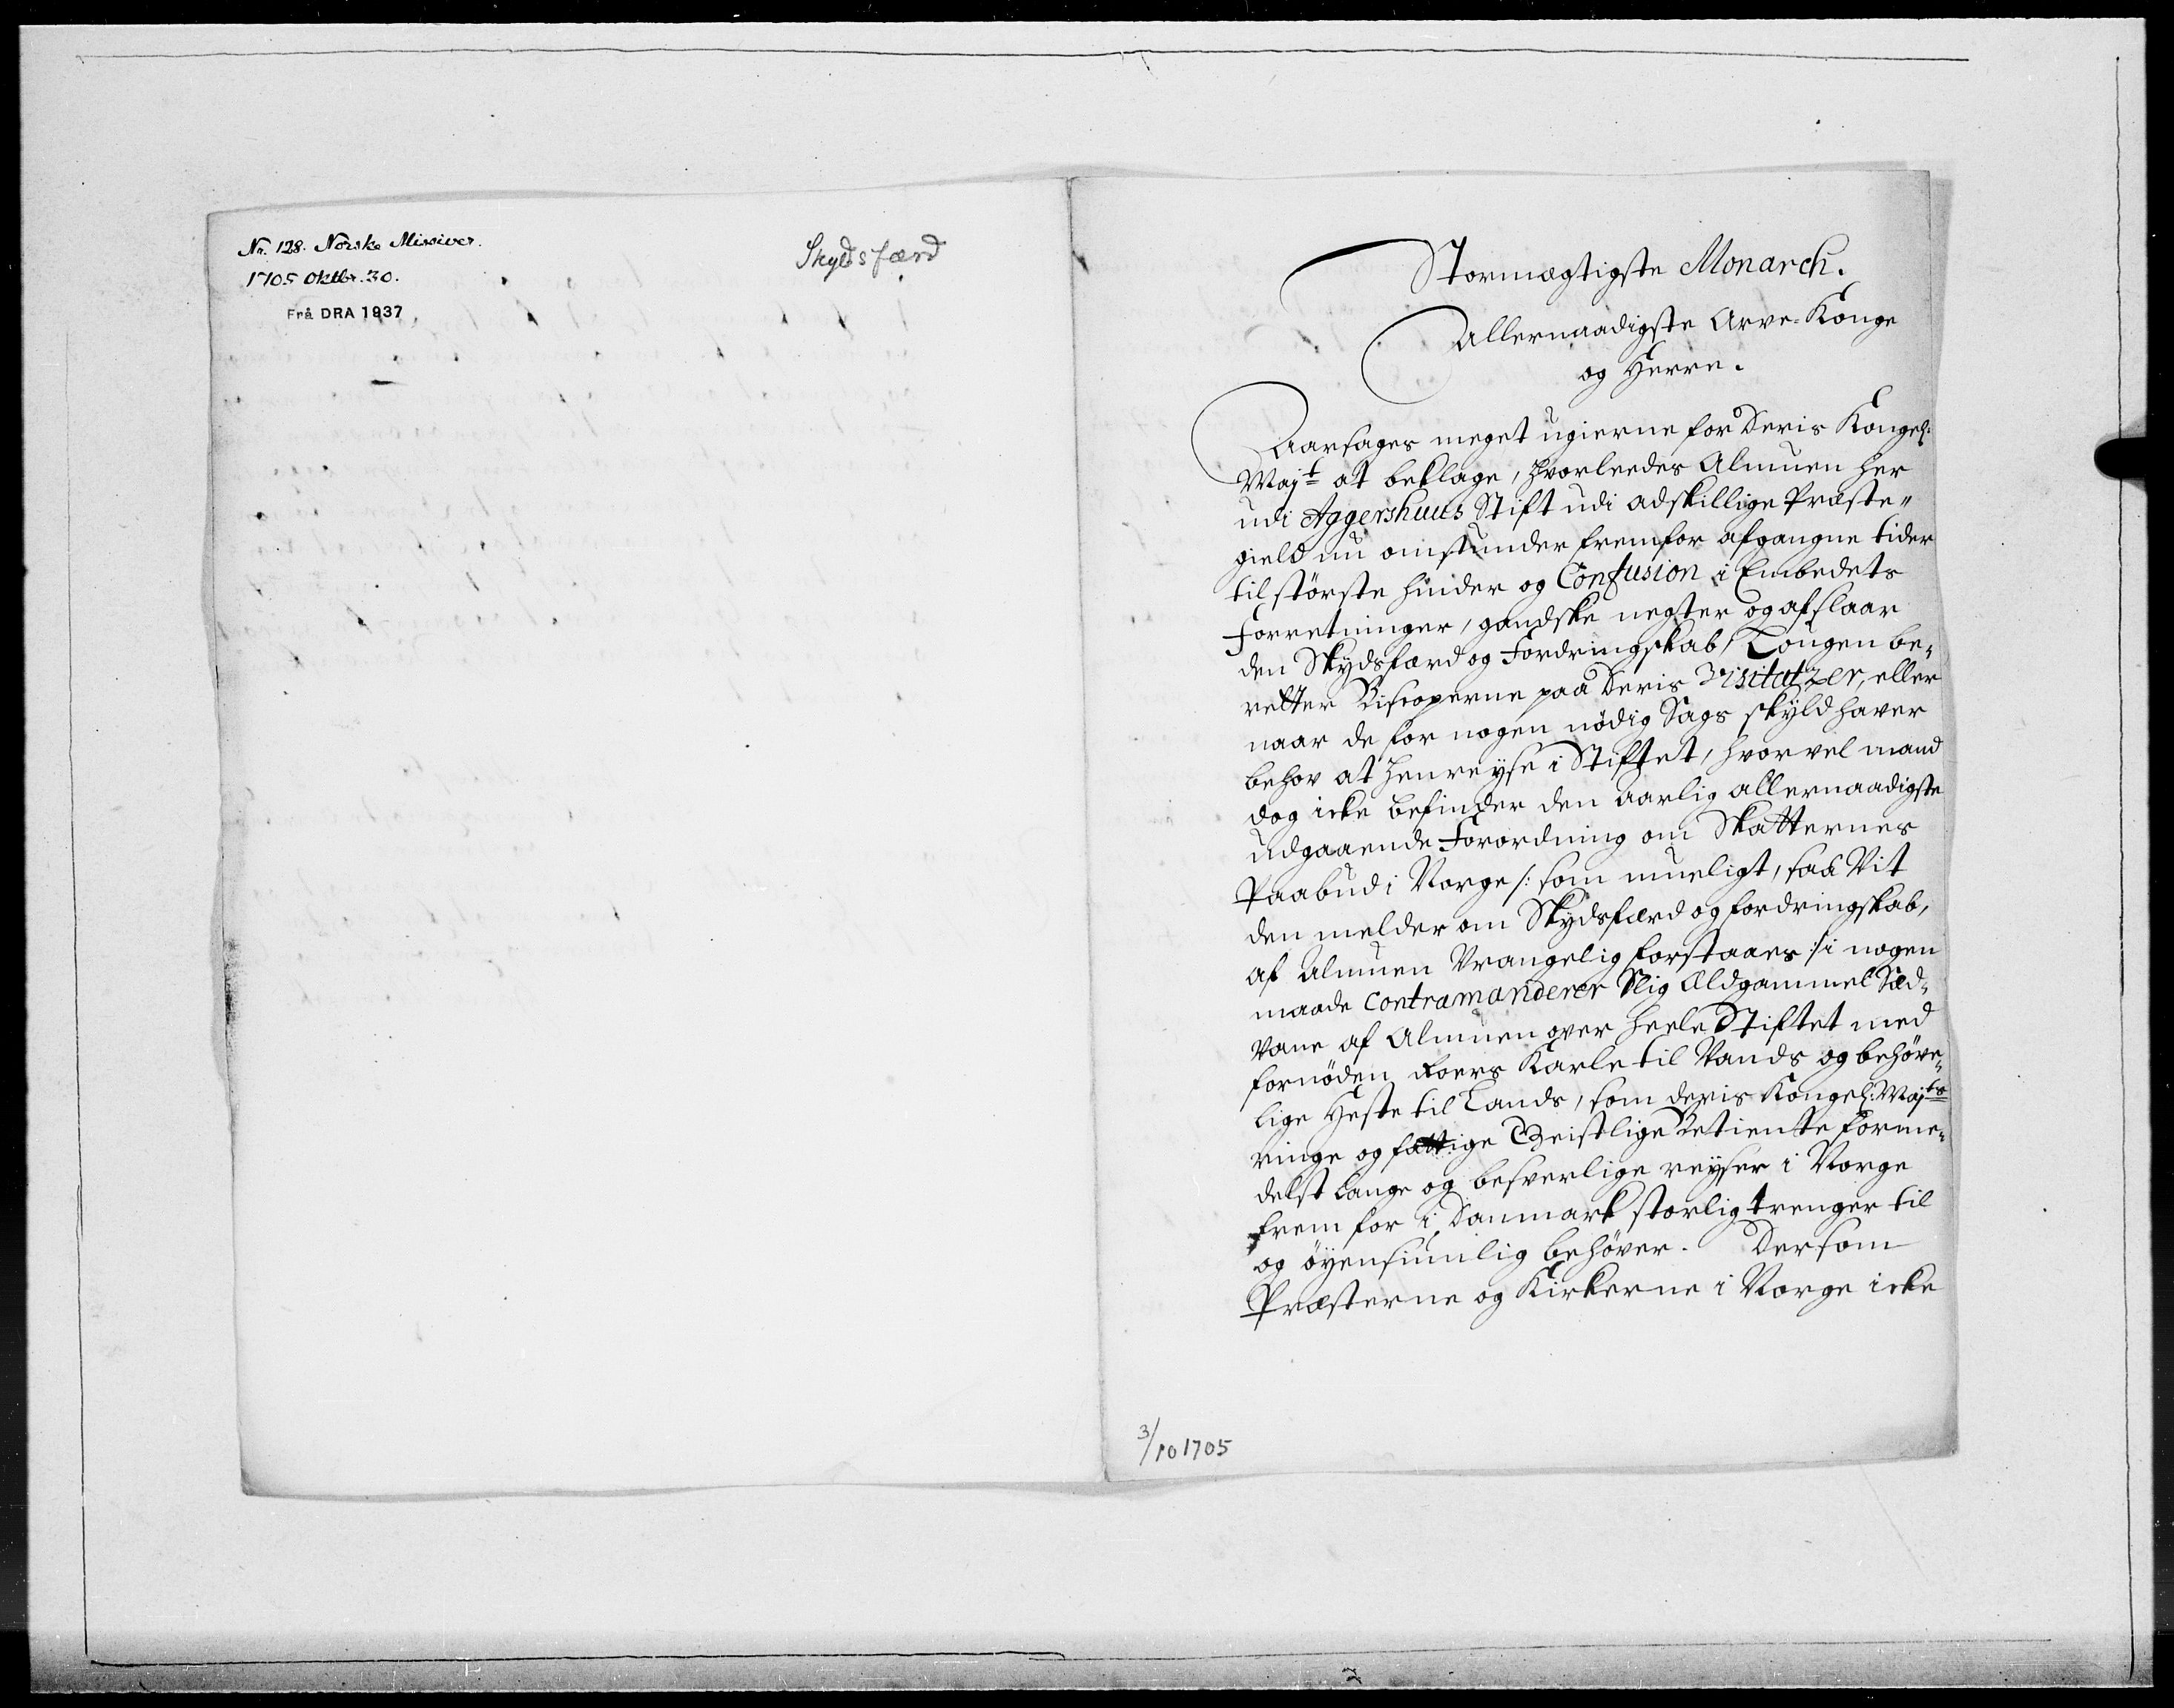 Nr. 128. Norske Missiver.
1705 Oktbr. 30.
Frå DRA 1937
Skydsfærd
Stormægtigste Monarch.
Allernaadigste Arve-Konge
og Herre.
Aarsages meget ugierne for Deris Kongel:
Majt at beklage, hvorleedes Almuen her
udi Aggershuus Stift udi adskillige Præste-
gield nu omstunder fremfor afgangne tider
til største hinder og Confusion i Embedets
Forretninger, gandske negter og afslaar
den Skydsfærd og Fordringskab, Lougen be-
retter Biscoperne paa Deris Visitatzer, eller
naar de for nogen nödig Sags skyld haver
behov at henreyse i Stiftet, hvorvel mand
dog icke befinder den aarlig allernaadigste
udgaaende Forordning om Skatternes
Paabud i Norge /: som mueligt, saa Vit
den melder om Skydsfærd og fordringskab,
af Almuen Vrangelig forstaaes :/ i nogen
maade contramanderer slig Ældgammel Sæd-
vane af Almuen over heele Stiftet med
fornöden Roers Karle til Vands og behöve-
lige Heste til Lands, som deris Kongel: Majts
ringe og fattige Geistlige Betiente forme-
delst lange og besverlige reyser i Norge
frem for i Danmark storlig trenger til
og öyensiunlig behöver. Dersom
Præsterne og Kirkerne i Norge icke
3/10 1705
2